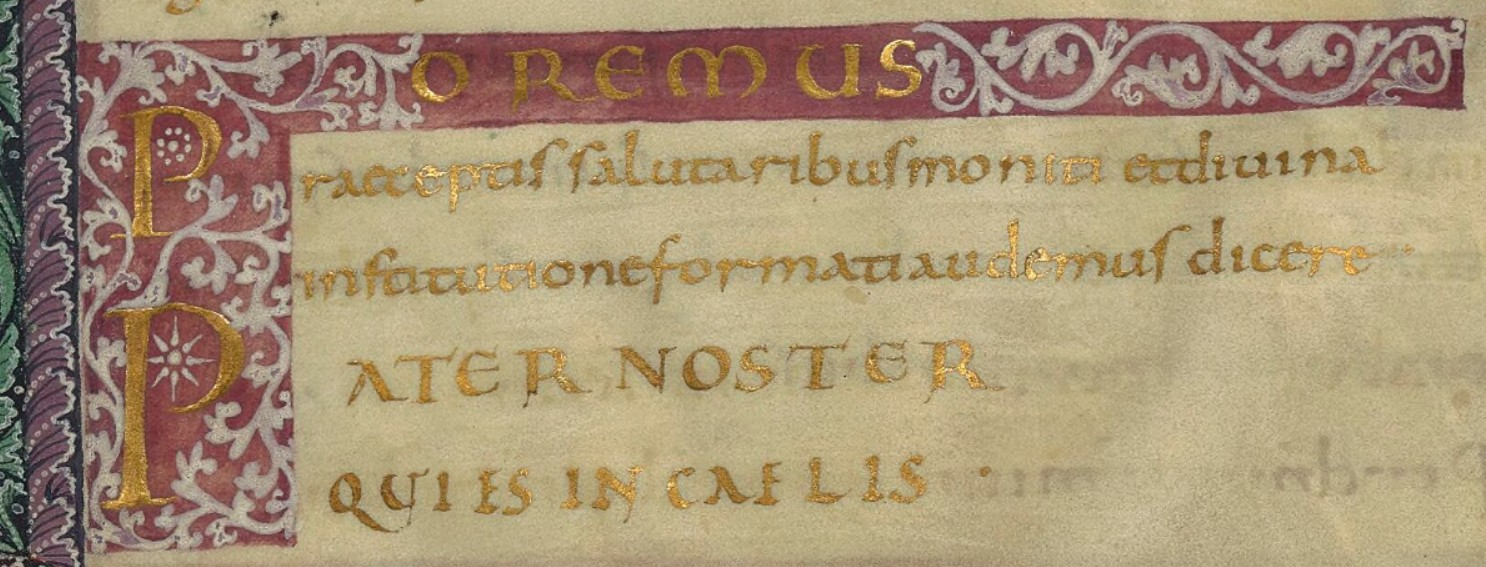 OREMUS
Praeceptis salutaribus moniti et divina
institutione formati audemus dicere
PATER NOSTER
QUI ES IN CAELIS ·